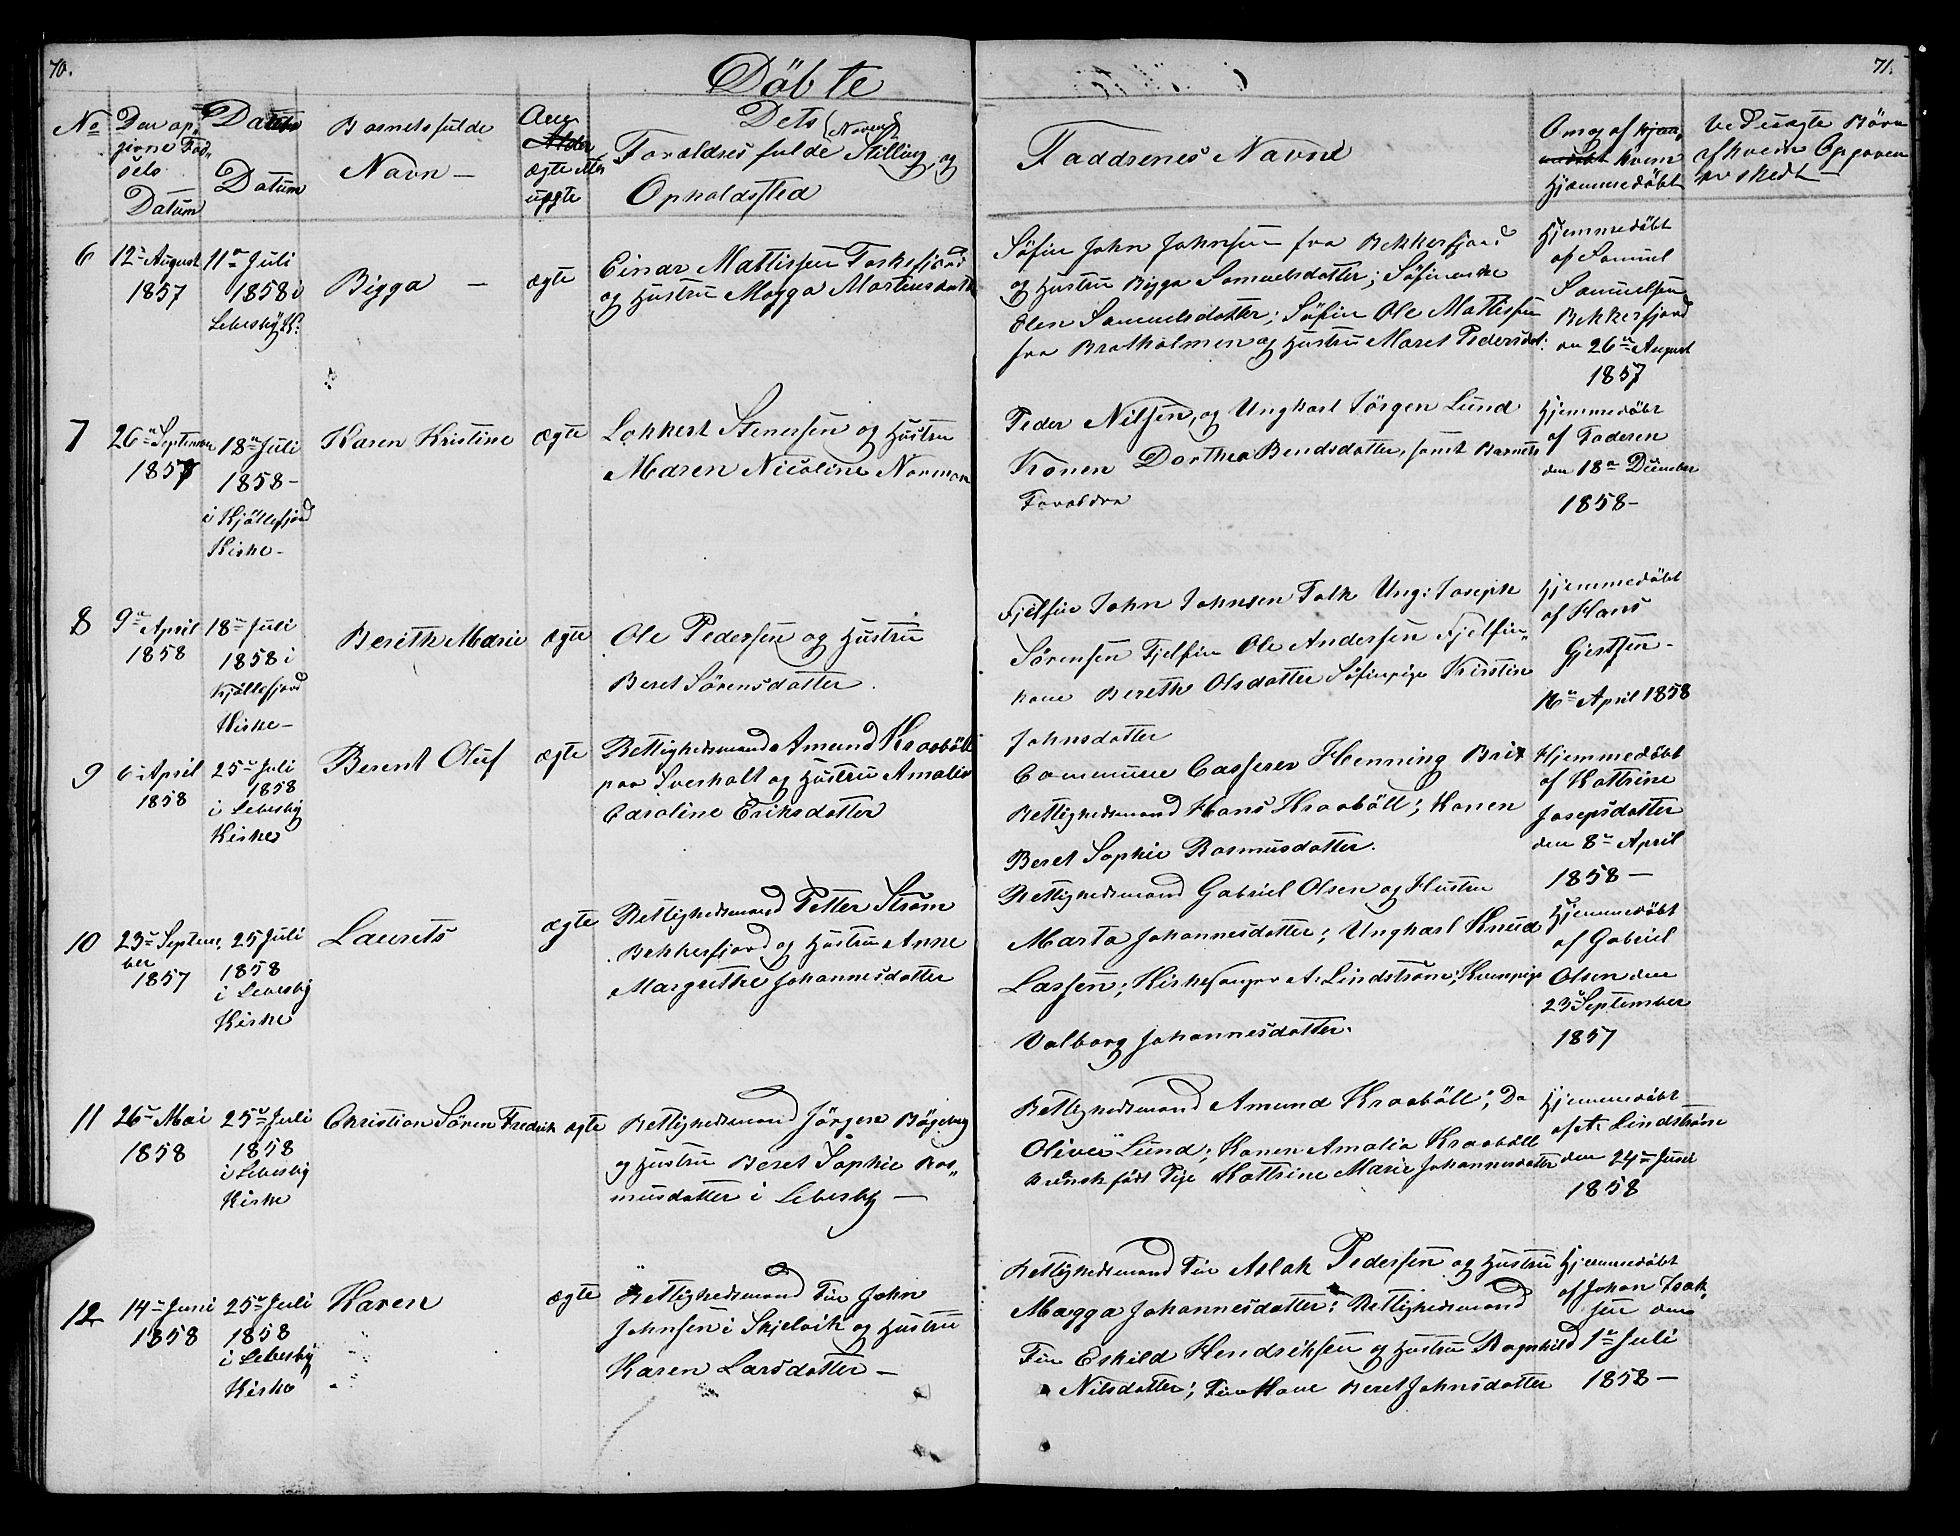 70.
71.
Döbte
No
Den op,
givne Föd,
sels
Datum
Datum
Barnets fulde
Navn —
Ang
ægte eller
uægte
Dets
Forældres fulde (Navne) Stilling og
Opholdssted
Faddrenes Navne
Om og af hvem
Hjemmedöbt
Ved uægte Börn
af hvem Opgaven
er skedt
6
12te August
1857
11te Juli
1858 i
Lebesby K:
Bigga —
ægte
Einar Mattissen Torskefjord
og Hustru Magga Mortensdatter
Söfin John Johnsen fra Bekkerfjord
og Hustru Bigga Samuelsdatter; Söfinenke
Elen Samuelsdatter; Söfin Ole Mattissen
fra Bratholmen og Hustru Maret Pedersdat:
Hjemmedöbt
af Samuel
Samuelsen
Bekkerfjord
den 26de August
1857
7
26de September
1857
18de Juli
1858 –
i Kjöllefjord
Kirke –
Karen Kristine
ægte
Lokkert Stenersen og Hustru
Maren Nicoline Norman
Peder Nilsen, og Ungkarl Jörgen Lund
Konen Dorthea Bendsdatter, samt Barnets
Forældre
Hjemmedöbt
af Faderen
den 18de December
1858 –
8
9de April
1858
18de Juli
1858 i
Kjöllefjord
Kirke –
Bereth Marie
ægte
Ole Pedersen og Hustru
Beret Sörensdatter.
Fjelfin John Johnsen Falk Ung: Joseph
Sörensen Fjelfin Ole Andersen Fjelfin„
kone Berethe Olsdatter Söfinpige Kirsten
Johnsdatter
Hjemmedöbt
af Hans
Gjertsen –
16de April 1858
9
6te April
1858
25de Juli
1858
i Lebesby
Kirke
Berent Oluf
ægte
Rettighedsmand Amund Kraaböll
paa Sværholt og Hustru Amalie
Caroline Eriksdatter
Commune Casserer Henning Brix
Rettighedsmand Hans Kraaböll; Konen
Beret Sophie Rasmusdatter.
Hjemmedöbt
af Kattrine
Josepsdatter
den 8de April
1858 —
10
23de Septem:
ber
1857
25 Juli
1858
i Lebesby
Kirke
Laurets
ægte
Rettighedsmand Petter Ström
Bekkerfjord og Hustru Anne
Margrethe Johannesdatter
Rettighedsmand Gabriel Olsen og Hustru
Marta Johannesdatter; Ungkarl Knud
Lassen; Kirkesanger A: Lindström; Kvænpige
Valborg Johannesdatter.
Hjemmedöbt
af Gabriel
Olsen den
23de September
1857
11
26de Mai
1858
25de Juli
1858
i Lebesby
Kirke
Christian Sören Fredrik
ægte
Rettighedsmand Jörgen Bögeberg
og Hustru Beret Sophie Ras„
musdatter i Lebesby —
Rettighedsmand Amund Kraaböll; Do
Olivei Lund; Konen Amalia Kraaböll
födt Pige Kattrine Marie Johannesdatter
Hjemmedöbt
af A: Lindström
den 24de Juni
1858
12
14de Juni
1858
25de Juli
1858
i Lebesby
Kirke
Karen
ægte
Rettighedsmand Fin John
Johnsen i Skjelvik og Hustru
Karen Larsdatter —
Rettighedsmand Fin Aslak Pedersen og Hustru
Magga Johannesdatter; Rettighedsmand
Fin Eskild Hendriksen og Hustru Ragnhild
Nilsdatter; Fin Kone Beret Johnsdatter
Hjemmedöbt
af Johan Isak„
sen den
1ste Juli
1858 —